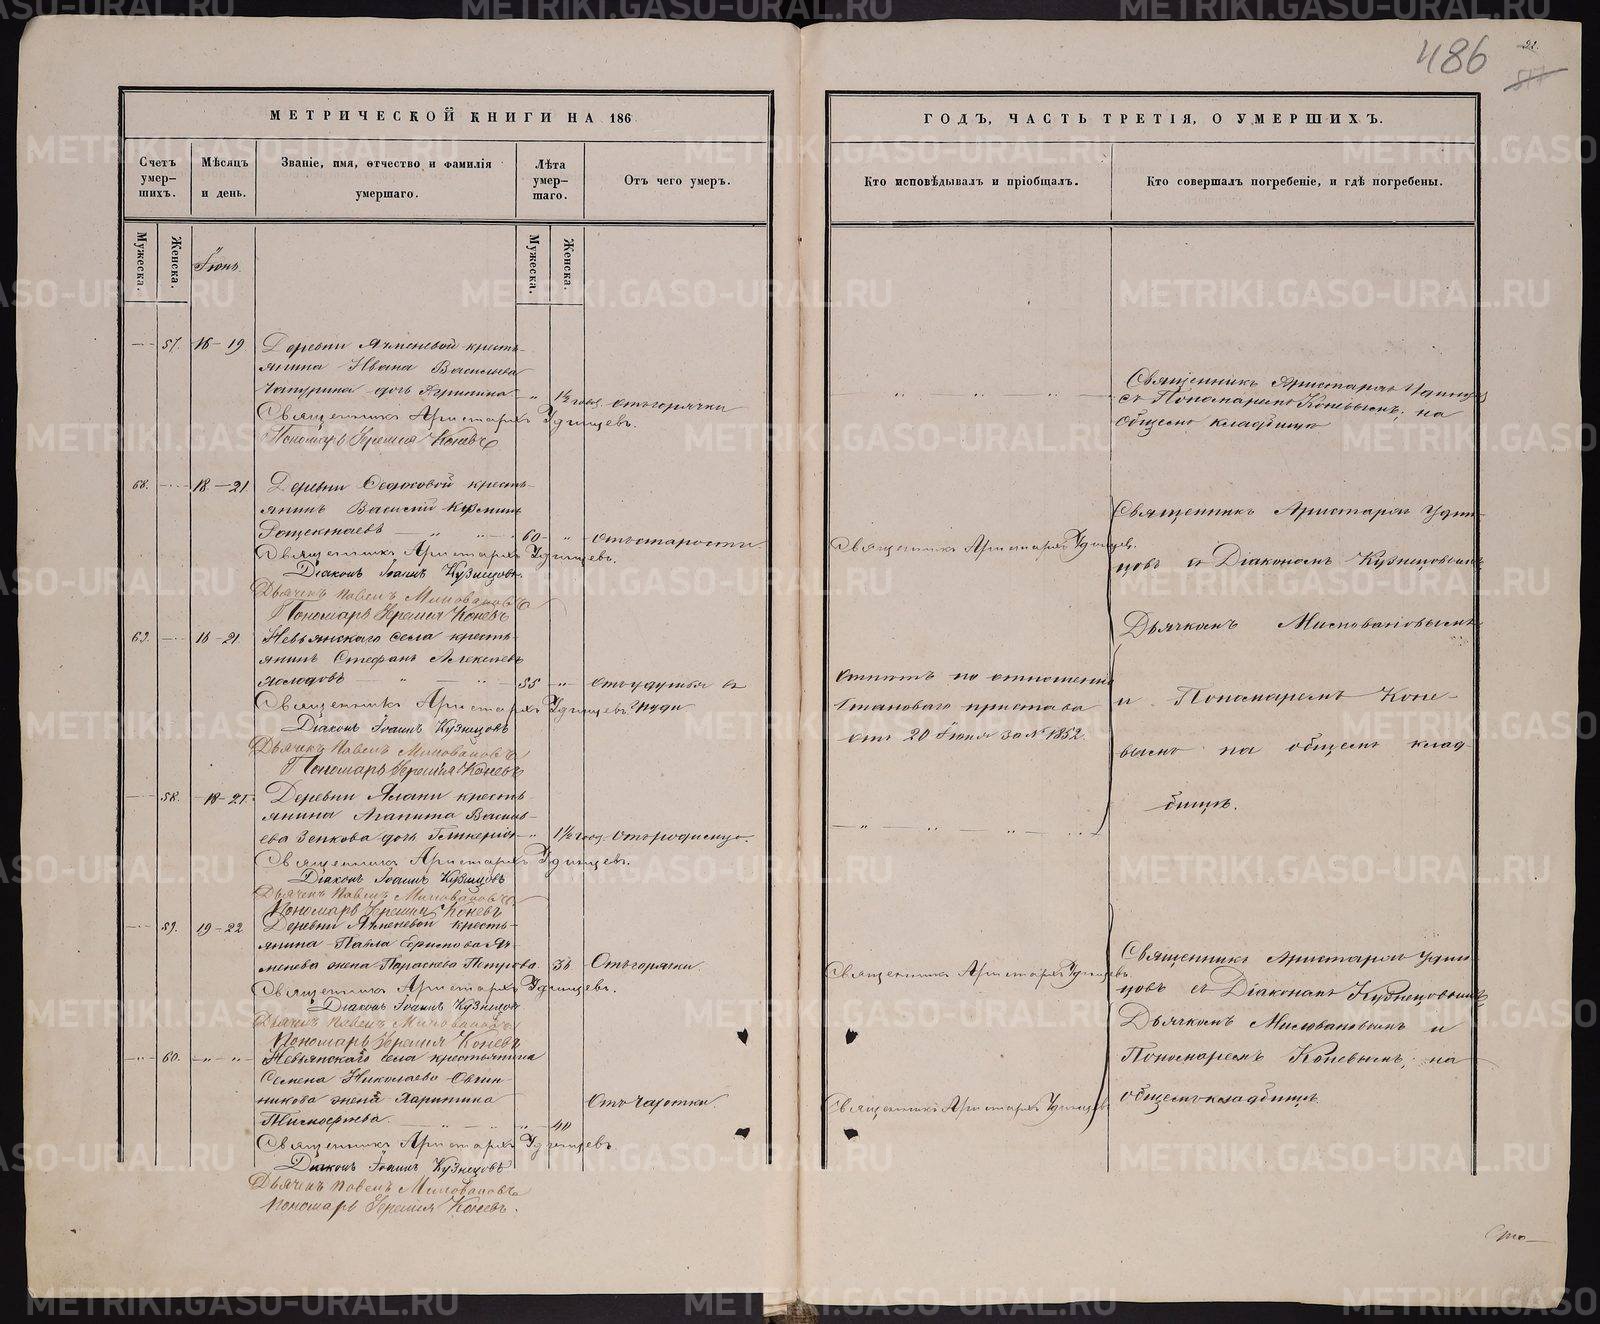 486
МЕТРИЧЕСКОЙ КНИГИ НА 186
ГОДЪ, ЧАСТЬ ТРЕТІЯ, О УМЕРШИХЪ.
Счетъ умер-шихъ.
Мѣсяцъ и день.
Званіе, имя, отчество и фамилія умершаго.
Лѣта умер-шаго.
Отъ чего умеръ.
Кто исповѣдывалъ и пріобщалъ.
Кто совершалъ погребеніе, и гдѣ погребены.
Мужеска.
Женска.
Мужеска.
Женска.
Іюнь
57. 16-19 Деревни Ячменевой кресть-
янина Ивана Васильева
дочь 1½ год. отъ горячки
Священникъ Аристархъ Удинцевъ.
Пономарь Іеремія Коневъ
Священникъ Аристархъ Удинцевъ
съ Пономаремъ Коневымъ, на
общемъ кладбищѣ
68. 18-21 Деревни Ѳедосовой кресть-
янинъ Василій Кузминъ
60 отъ старости
Священникъ Аристархъ Удинцевъ.
Діаконъ Іоаннъ Кузнецовъ.
Дьячекъ Павелъ Миловановъ
Пономарь Іеремія Коневъ
Священникъ Аристархъ Удинцевъ.
Священникъ Аристархъ Удин-
цовъ съ Діакономъ Кузнецовымъ
Дьячкомъ Миловановымъ
и Пономаремъ Коне-
вымъ на общемъ клад-
бищѣ.
69. 16-21 Невьянскаго села кресть-
янинъ Стефанъ Алексѣевъ
55
Священникъ Аристархъ Удинцевъ.
Діаконъ Іоаннъ Кузнецовъ
Дьячекъ Павелъ Миловановъ
Пономарь Іеремія Коневъ
Отпѣтъ по отношенію
Становаго пристава
отъ 20 Іюня за № 1852.
58. 18-21. Деревни Ялани кресть-
янина Агапита Василь-
ева Зенкова дочь Гликерія 1½ год. отъ родимцу.
Священникъ Аристархъ Удинцевъ.
Діаконъ Іоаннъ Кузнецовъ
Дьячекъ Павелъ Миловановъ
Пономарь Іеремія Коневъ
59. 19-22 Деревни Ячменевой кресть-
янина Павла Ефимова Яч-
менева жена Параскева Петрова 36 Отъ горячки
Священникъ Аристархъ Удинцевъ.
Діаконъ Іоаннъ Кузнецовъ
Дьячекъ Павелъ Миловановъ
Пономарь Іеремія Коневъ
Священникъ Аристархъ Удинцевъ.
Священникъ Аристархъ Удин-
цовъ съ Діакономъ Кузнецовымъ
Дьячкомъ Миловановымъ и
Пономаремъ Коневымъ, на
общемъ кладбищѣ.
60. Невьянскаго села крестьянина
Семена Николаева Овчин-
никова жена Харитина
Тимоѳеева 40 Отъ чахотки
Священникъ Аристархъ Удинцевъ
Діаконъ Іоаннъ Кузнецовъ
Дьячекъ Павелъ Миловановъ
Пономарь Іеремія Коневъ.
Священникъ Аристархъ Удинцевъ
METRIKI.GASO-URAL.RU